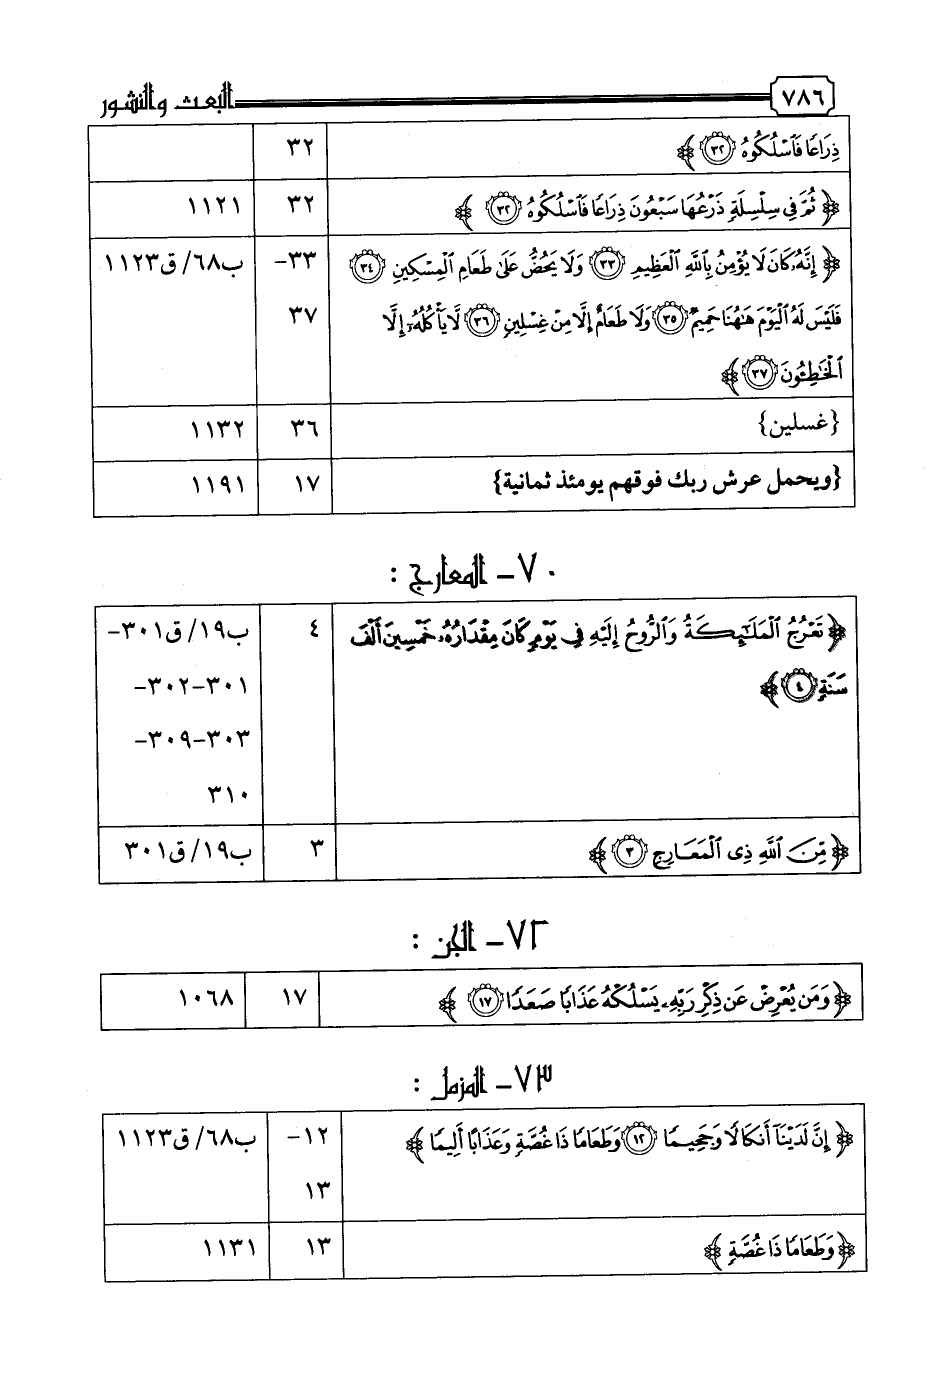 ٧٨٦ البعث والنشور
ذِرَاعًا فَاسْلُكُوهُ ﴿٣٢﴾ ٣٢
﴿ ثُمَّ فِي سِلْسِلَةٍ ذَرْعُهَا سَبْعُونَ ذِرَاعًا فَاسْلُكُوهُ ﴿٣٢﴾ ٣٢ ١١٢١
﴿ إِنَّهُ كَانَ لَا يُؤْمِنُ بِاللَّهِ الْعَظِيمِ ﴿٣٣﴾ وَلَا يَحُضُّ عَلَىٰ طَعَامِ الْمِسْكِينِ ﴿٣٤﴾ ٣٣- ب٦٨/ ق١١٢٣
فَلَيْسَ لَهُ الْيَوْمَ هَاهُنَا حَمِيمٌ ﴿٣٥﴾ وَلَا طَعَامٌ إِلَّا مِنْ غِسْلِينٍ ﴿٣٦﴾ لَا يَأْكُلُهُ إِلَّا ٣٧
الْخَاطِئُونَ ﴿٣٧﴾
{غسلين} ٣٦ ١١٣٢
{ويحمل عرش ربك فوقهم يومئذ ثمانية} ١٧ ١١٩١
٧٠- المعارج :
﴿ تَعْرُجُ الْمَلَائِكَةُ وَالرُّوحُ إِلَيْهِ فِي يَوْمٍ كَانَ مِقْدَارُهُ خَمْسِينَ أَلْفَ ٤ ب١٩/ ق٣٠١-
سَنَةٍ ﴿٤﴾ ٣٠١-٣٠٢-
٣٠٣-٣٠٩-
٣١٠
﴿ مِّنَ اللَّهِ ذِي الْمَعَارِجِ ﴿٣﴾ ٣ ب١٩/ ق٣٠١
٧٢- الجن :
﴿ وَمَن يُعْرِضْ عَن ذِكْرِ رَبِّهِ يَسْلُكْهُ عَذَابًا صَعَدًا ﴿١٧﴾ ١٧ ١٠٦٨
٧٣- المزمل :
﴿ إِنَّ لَدَيْنَا أَنكَالًا وَجَحِيمًا ﴿١٢﴾ وَطَعَامًا ذَا غُصَّةٍ وَعَذَابًا أَلِيمًا ﴾ ١٢- ب٦٨/ ق١١٢٣
١٣
﴿ وَطَعَامًا ذَا غُصَّةٍ ﴾ ١٣ ١١٣١